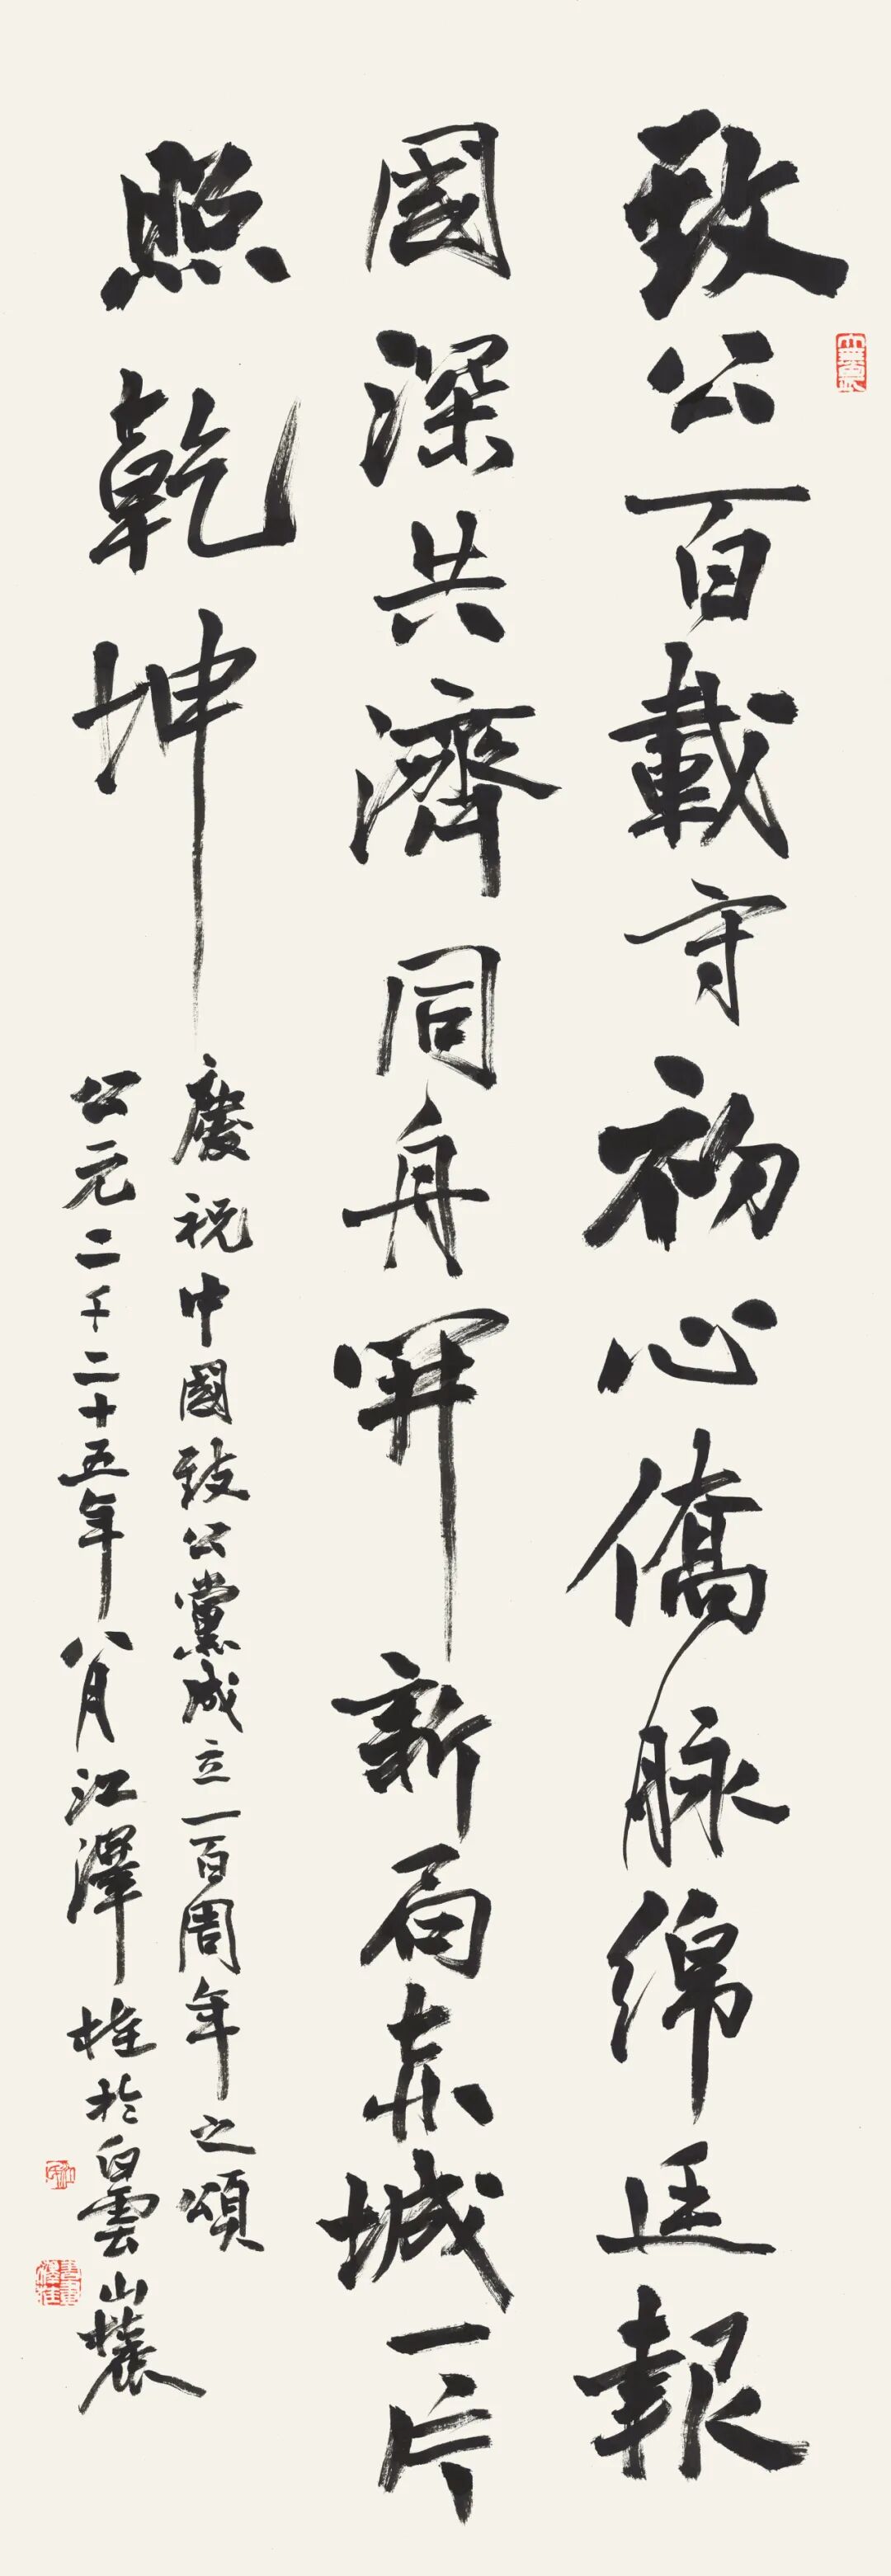 致公百載守初心僑脉綿延報
國深共濟同舟開新局赤城一片
照乾坤
慶祝中國致公黨成立一百周年之頌
公元二千二十五年八月江澤桂於白雲山麓